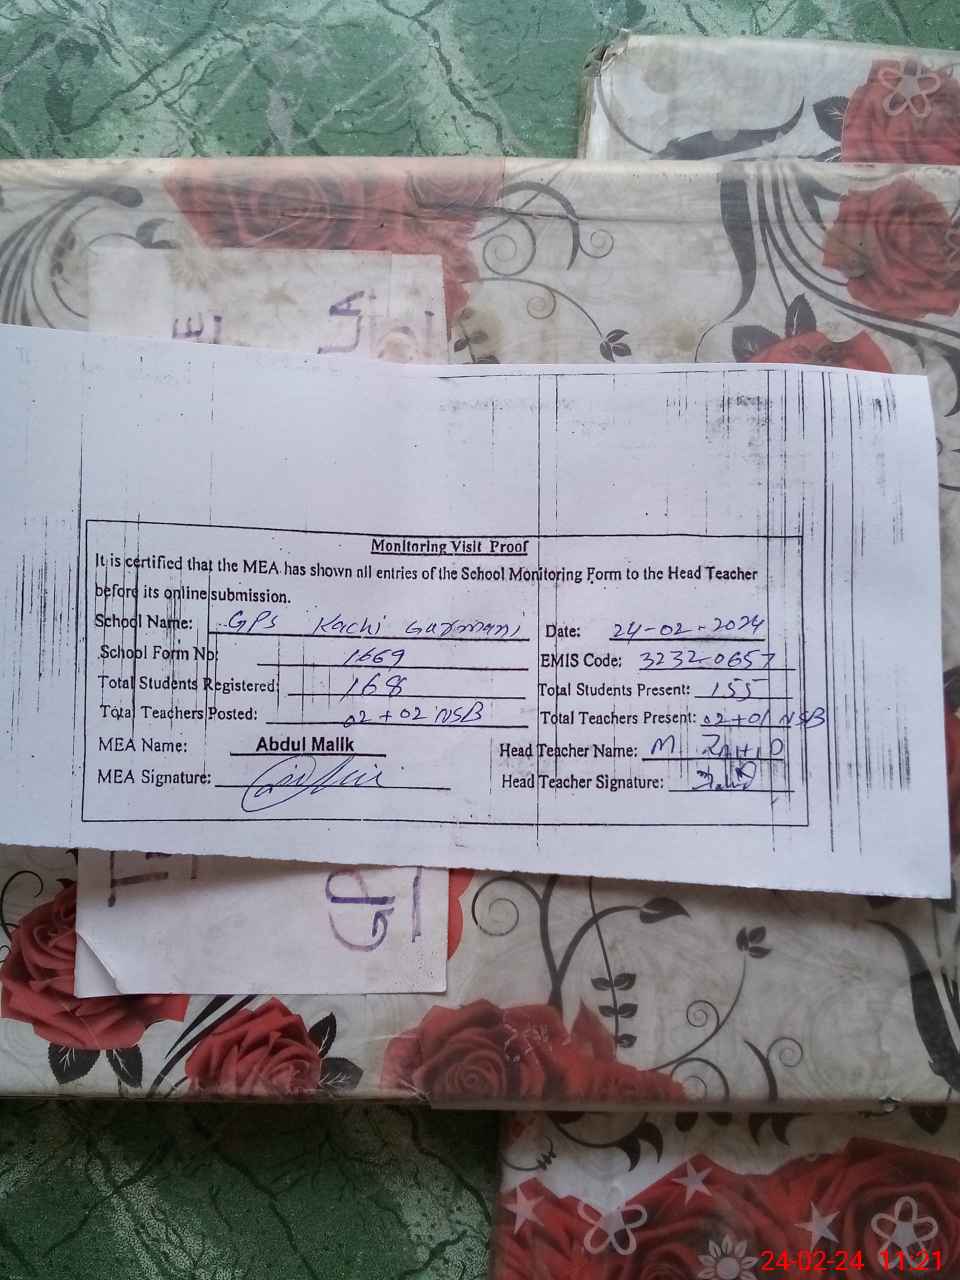 E
LA
Monitoring Visit Proof
It is certified that the MEA has shown all entries of the School Monitoring Form to the Head Teacher
before its online submission.
School Name: GPS Kachi Gurmani Date: 24-02-2024
School Form No: 1669 EMIS Code: 32320657
Total Students Registered: 168 Total Students Present: 155
Total Teachers Posted: 02+02 NSB Total Teachers Present: 02+01 NSB
MEA Name: Abdul Malik Head Teacher Name: M ZAHID
MEA Signature: Head Teacher Signature: Zahid
T
GP
24-02-24 11:21